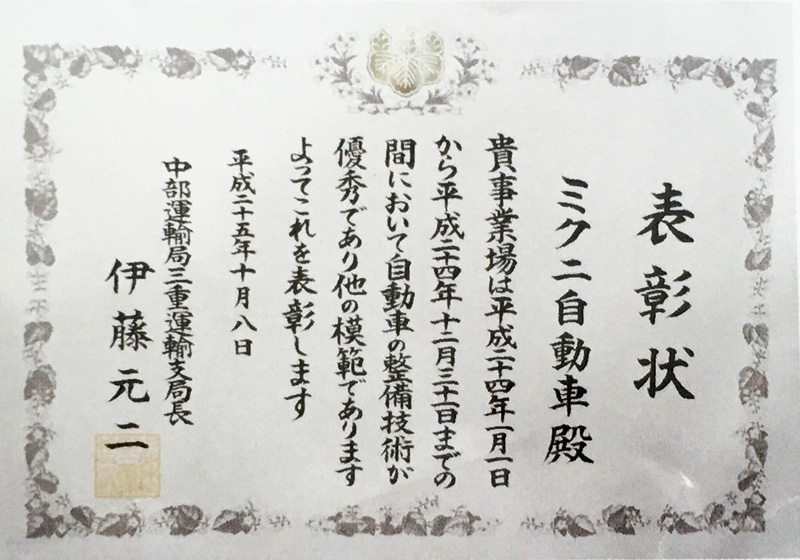 表彰状
ミクニ自動車殿
貴事業場は平成二十四年一月一日
から平成二十四年十二月三十一日までの
間において自動車の整備技術が
優秀であり他の模範であります
よってこれを表彰します
平成二十五年十月八日
中部運輸局三重運輸支局長
伊藤元二